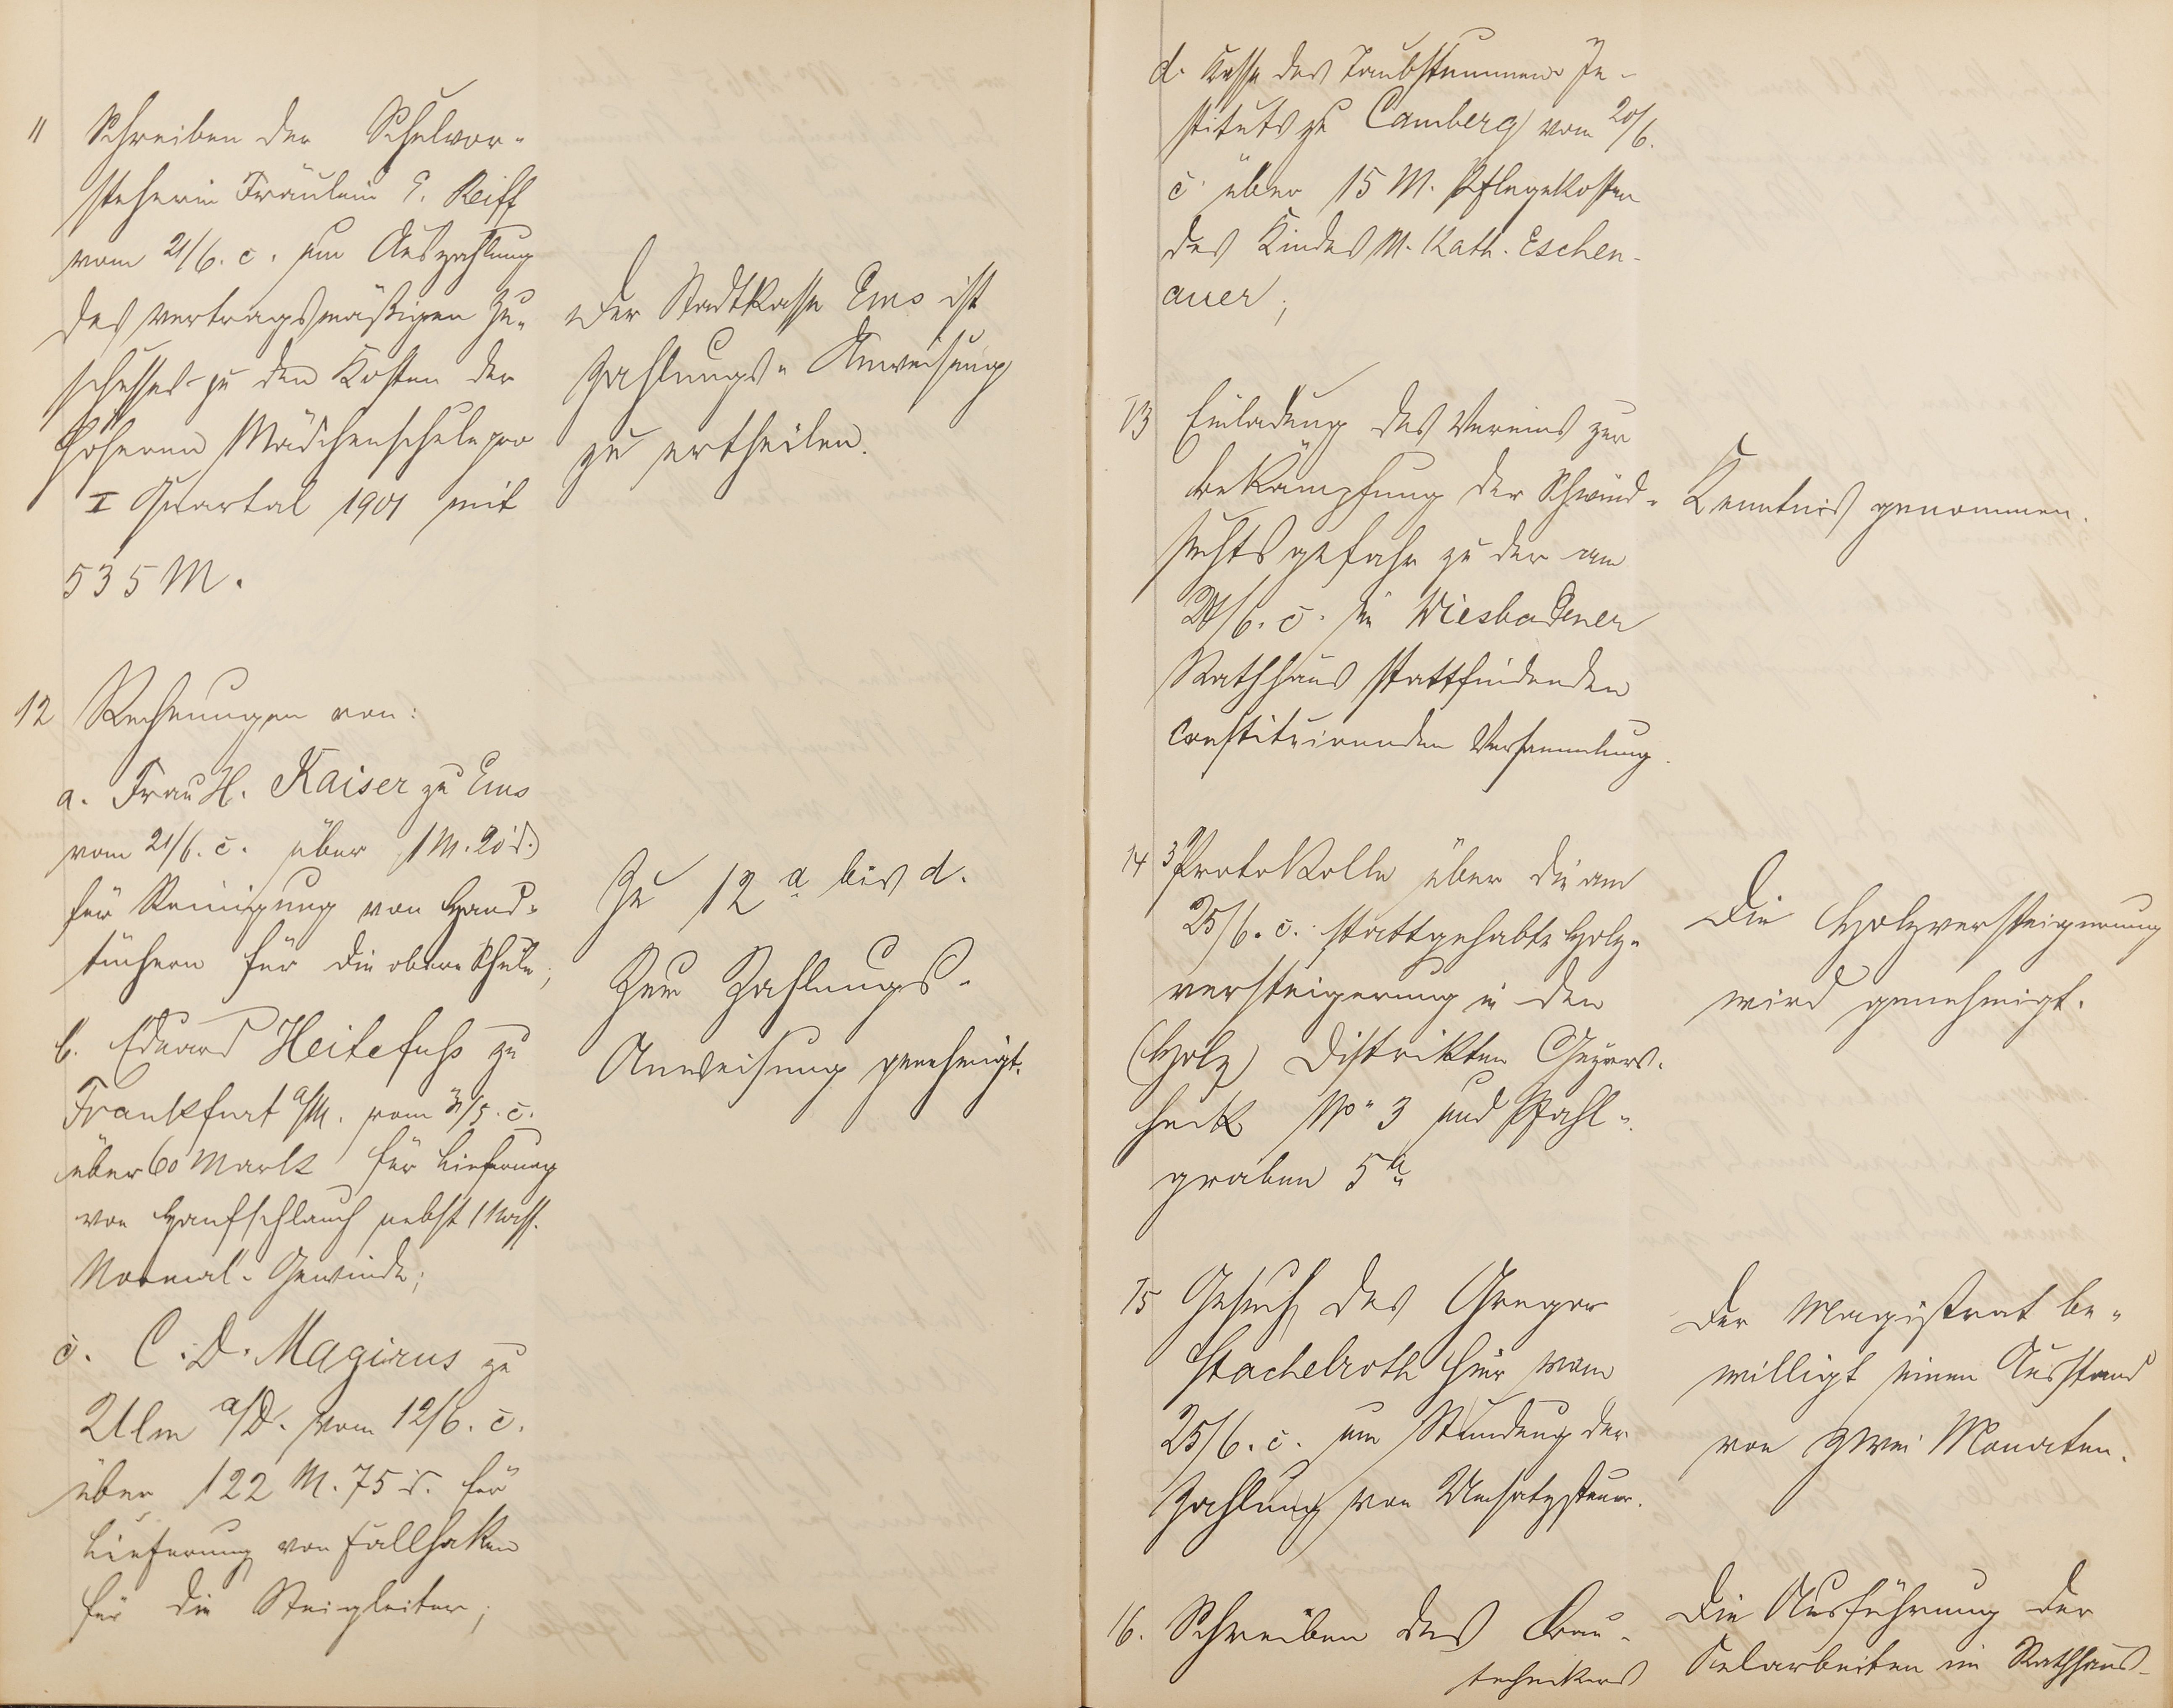 11 Schreiben der Schulvor-
steherin Fräulein E. Reiff
vom 21/6. c. um Auszahlung
des vertragsmäßigen Zu-
schusses zu den Kosten der
höheren Mädchenschule pro
I Quartal 1901 mit
535 M.
Der Stadtkasse Ems ist
Zahlungs-Anweisung
zu ertheilen.
12 Rechnungen von:
a. Frau H. Kaiser zu Ems
vom 21/6. c. über 1 M. 20 ₰
für Reinigung von Hand-
tüchern für die obere Schule;
b. Eduard Heitefuss zu
Frankfurt a/M. vom 31/5. c.
über 60 Mark für Lieferung
von Hanfschlauch nebst 1 Nass.
Normal-Gewinde;
c. C. D. Magirus zu
Ulm a/D. vom 12/6. c.
über 122 M. 75 ₰. für
Lieferung von Fallhaken
für die Steigleiter;
Zu 12 a bis d.
Zur Zahlungs-
Anweisung genehmigt.
d. Kasse des Taubstummen-In-
stituts zu Camberg vom 20/6.
c. über 15 M. Pflegekosten
des Kindes M. Kath. Eschen-
auer;
13 Einladung des Vereins zur
Bekämpfung der Schwind-
suchtsgefahr zu der am
/6. c. im Wiesbadener
Rathhaus stattfindenden
constituirenden Versammlung.
Kenntniß genommen.
14 3 Protokolle über die am
25/6. c. stattgehabte Holz-
versteigerung in den
(Holz) Distrikten
heck No 3 und Pfahl-
graben 5a
Die Holzversteigerung
wird genehmigt.
15 Gesuch des Gregor
Stachelroth hier vom
25/6. c. um Stundung der
Zahlung von Umsatzsteuer.
Der Magistrat be-
willigt einen Ausstand
von zwei Monaten.
16. Schreiben des Bau-
technikers
Die Ausführung der
Kelarbeiten im Rathhaus-